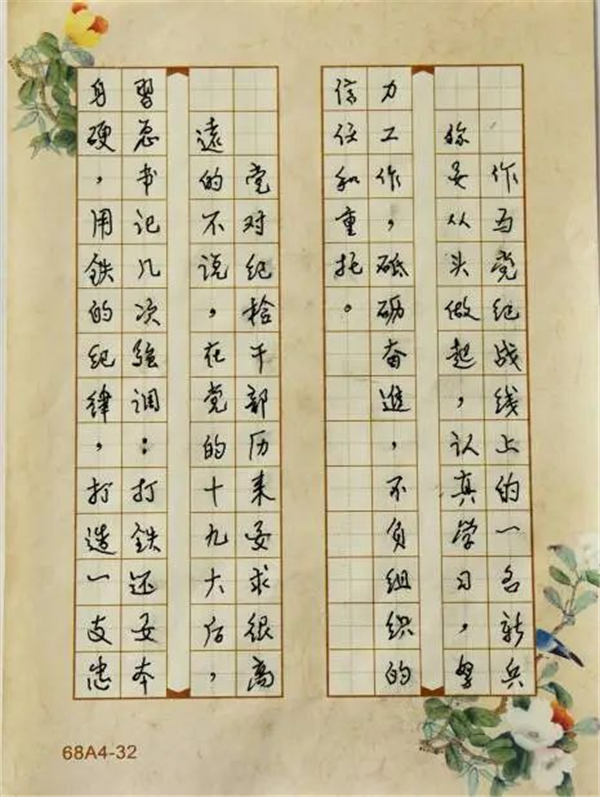 作为党纪战线上的一名新兵
你要从头做起，认真学习，努
力工作，砥砺奋進，不负组织的
信任和重托。
党对纪检干部历来要求很高
遠的不说，在党的十九大后，
習总书记几次强调：打鉄还要本
身硬，用鉄的纪律，打造一支忠
68A4-32